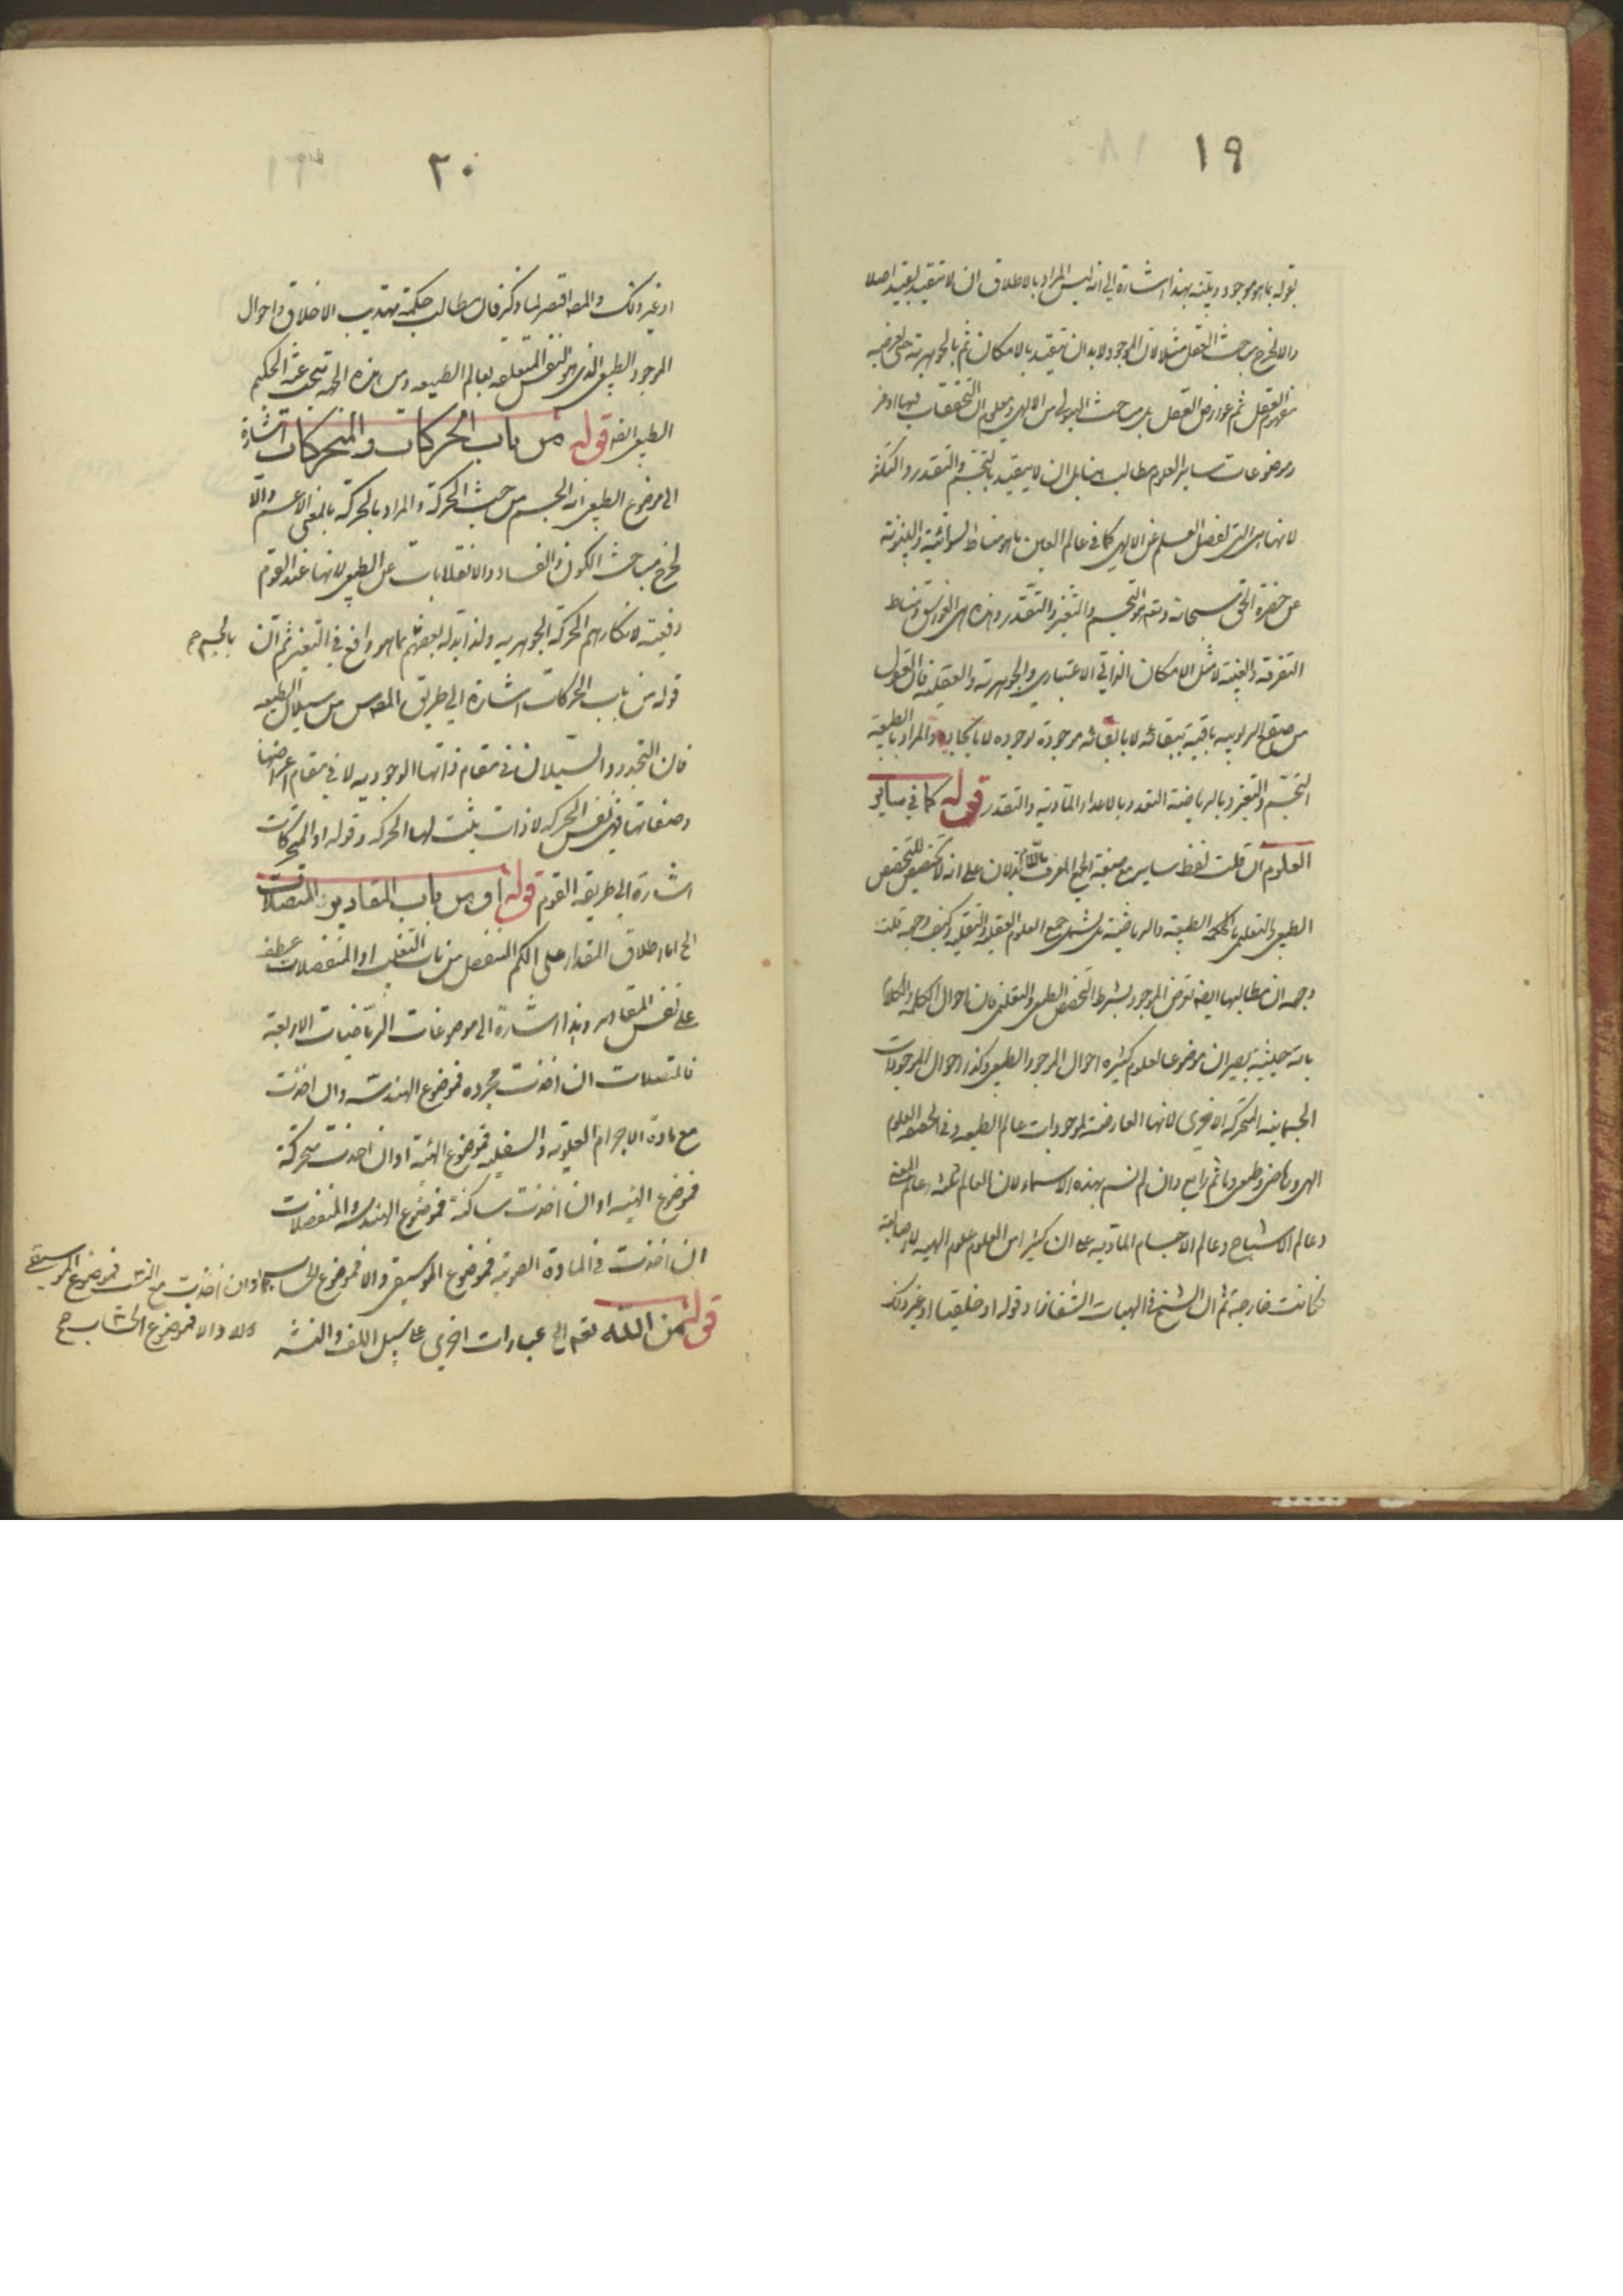 ١٩
بقوله بما هو موجود وبينه بهذا اشارة الى انه ليس المراد بالاطلاق ان لا يتقيد بقيد اصلا
والا لخرج مباحث العقل مثلا لان الموجود لابد ان يتقيد بالامكان ثم بالجوهرية حتى
مفهوم العقل ثم عوارض العقل بل مباحث الهيولى من الالهى ومعلوم ان التحققات فيها اوفر
وموضوعات سائر العلوم مطالب بل ان لا يتقيد بالتجسم والتقدر والتكثر
لانها هى التى تفصل العلم عن الالهى كما فى عالم العين ما هو مناط السوائية والبينونة
عن حضرة الحق سبحانه وتعالى هو التجسم والتغير والتقدر وهذه هى الغواسق ومناط
التفرقة والغيبة لا مثل الامكان الذاتى الاعتبارى والجوهرية والعقلية فان العقول
من صقع الربوبية باقية ببقائه لا بابقائه موجودة بوجوده لا بايجاده والمراد بالطبيعية
التجسم والتغير وبالرياضية التعدد بالاعداد المادية والتقدر قوله كما فى سائر
العلوم ان قلت لفظ ساير مع صيغة الجمع المعرف باللام يدلان على انه لا تخصيص للتخصص
الطبيعى والتعليمى بالحكمة الطبيعية والرياضية بل يشمل جميع العلوم العقلية والنقلية وكيف وجهه قلت
وجهه ان مطالبها ايضا تعرض الموجود بشرط التخصص الطبيعى والتعليمى فان احوال الكلمة والكلام
باية حيثية يصير ان موضوعا لعلوم كثيرة احوال الموجود الطبيعى وكذا احوال الموجودات
الجسمانية المتحركة الاخرى لانها العارضة لموجودات عالم الطبيعة وفى الحقيقة العلوم
الهى ورياضى وطبيعى وما ثم رابع وان لم تسم بهذه الاسماء لان العالم ثلثة عالم المعنى
وعالم الاشباح وعالم الاجسام المادية على ان كثيرا من العلوم علوم الهية
كانت خارجة ثم ان الشيخ فى الهيات الشفا زاد قوله او خلقيا او غير ذلك
٢٠
او غير ذلك والمصـ اقتصر لما ذكر فان مطالب حكمة تهذيب الاخلاق احوال
الموجود الطبيعى الذى هو النفس المتعلقة بعالم الطبيعة ومن هذه الجهة يبحث عنه الحكيم
الطبيعى ايضا قوله من باب الحركات والمتحركات اشارة
الى موضوع الطبيعى انه الجسم من حيث الحركة والمراد بالحركة بالمعنى الاعم والا
لخرج مباحث الكون والفساد والانقلابات عن الطبيعى لانها عند القوم
دفعية لانكارهم الحركة الجوهرية ولذا بدله بعضهم بما هو واقع فى التغير ثم ان بالجسم صح
قوله من باب الحركات اشارة الى طريق المصـ من سيلان الطبيعة
فان التجدد والسيلان فى مقام ذاتها الوجودية لا فى مقام اعراضها
وصفاتها فهى نفس الحركة لا ذات يثبت لها الحركة وقوله او المتحركات
اشارة الى طريقة القوم قوله او من باب المقادير المتصلات
الخ اما اطلاق المقدار على الكم المنفصل من باب التغليب او المنفصلات عطف
على نفس المقادير وهذا اشارة الى موضوعات الرياضيات الاربعة
فالمتصلات ان اخذت مجردة فموضوع الهندسة وان اخذت
مع مادة الاجرام العلوية والسفلية فموضوع الهيئة او ان اخذت متحركة
فموضوع الهيئة او ان اخذت ساكنة فموضوع الهندسة والمنفصلات
ان اخذت فى المادة الصوتية فموضوع الموسيقى والا فموضوع الحساب او ان اخذت مع النسب فموضوع الموسيقى
والا فموضوع الحساب صح
قوله من الله نعم الى عبارات اخرى على سبيل اللف والنشر